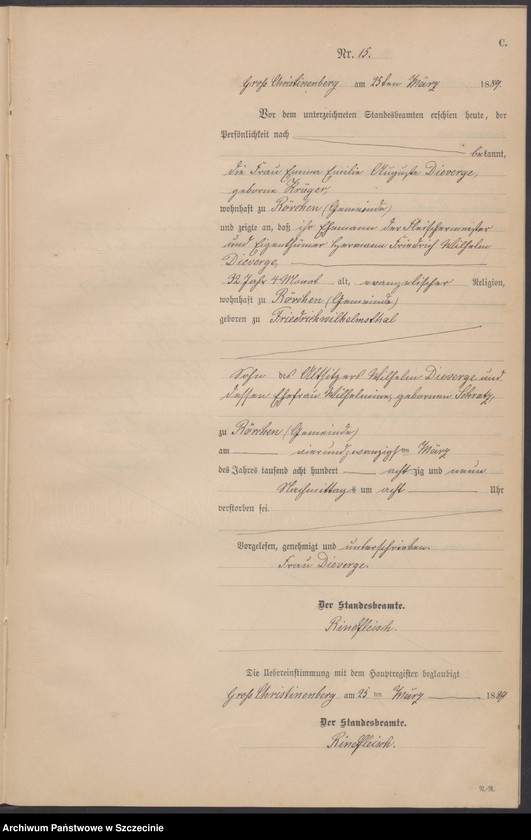 C.
Nr. 15.
Groß Christinenberg am 25ten März 1889.
Vor dem unterzeichneten Standesbeamten erschien heute, der
Persönlichkeit nach
bekannt,
die Frau Emma Emilie Auguste Dieverge,
geborne Krüger,
wohnhaft zu Rörchen (Gemeinde)
und zeigte an, daß ihr Ehemann der Fleischermeister
und Eigenthümer Hermann Friedrich Wilhelm
Dieverge,
32 Jahr 4 Monat alt, evangelischer Religion,
wohnhaft zu Rörchen (Gemeinde)
geboren zu Friedrichwilhelmsthal
Sohn des Altsitzers Wilhelm Dieverge und
dessen Ehefrau Wilhelmine, gebornen
zu Rörchen (Gemeinde)
am vierundzwanzigsten März
des Jahres tausend acht hundert achtzig und neun
Nachmittags um acht Uhr
verstorben sei.
Vorgelesen, genehmigt und unterschrieben.
Frau Dieverge.
Der Standesbeamte.
Rindfleisch.
Die Uebereinstimmung mit dem Hauptregister beglaubigt
Groß Christinenberg am 25ten März 1889
Der Standesbeamte.
Rindfleisch.
Archiwum Państwowe w Szczecinie